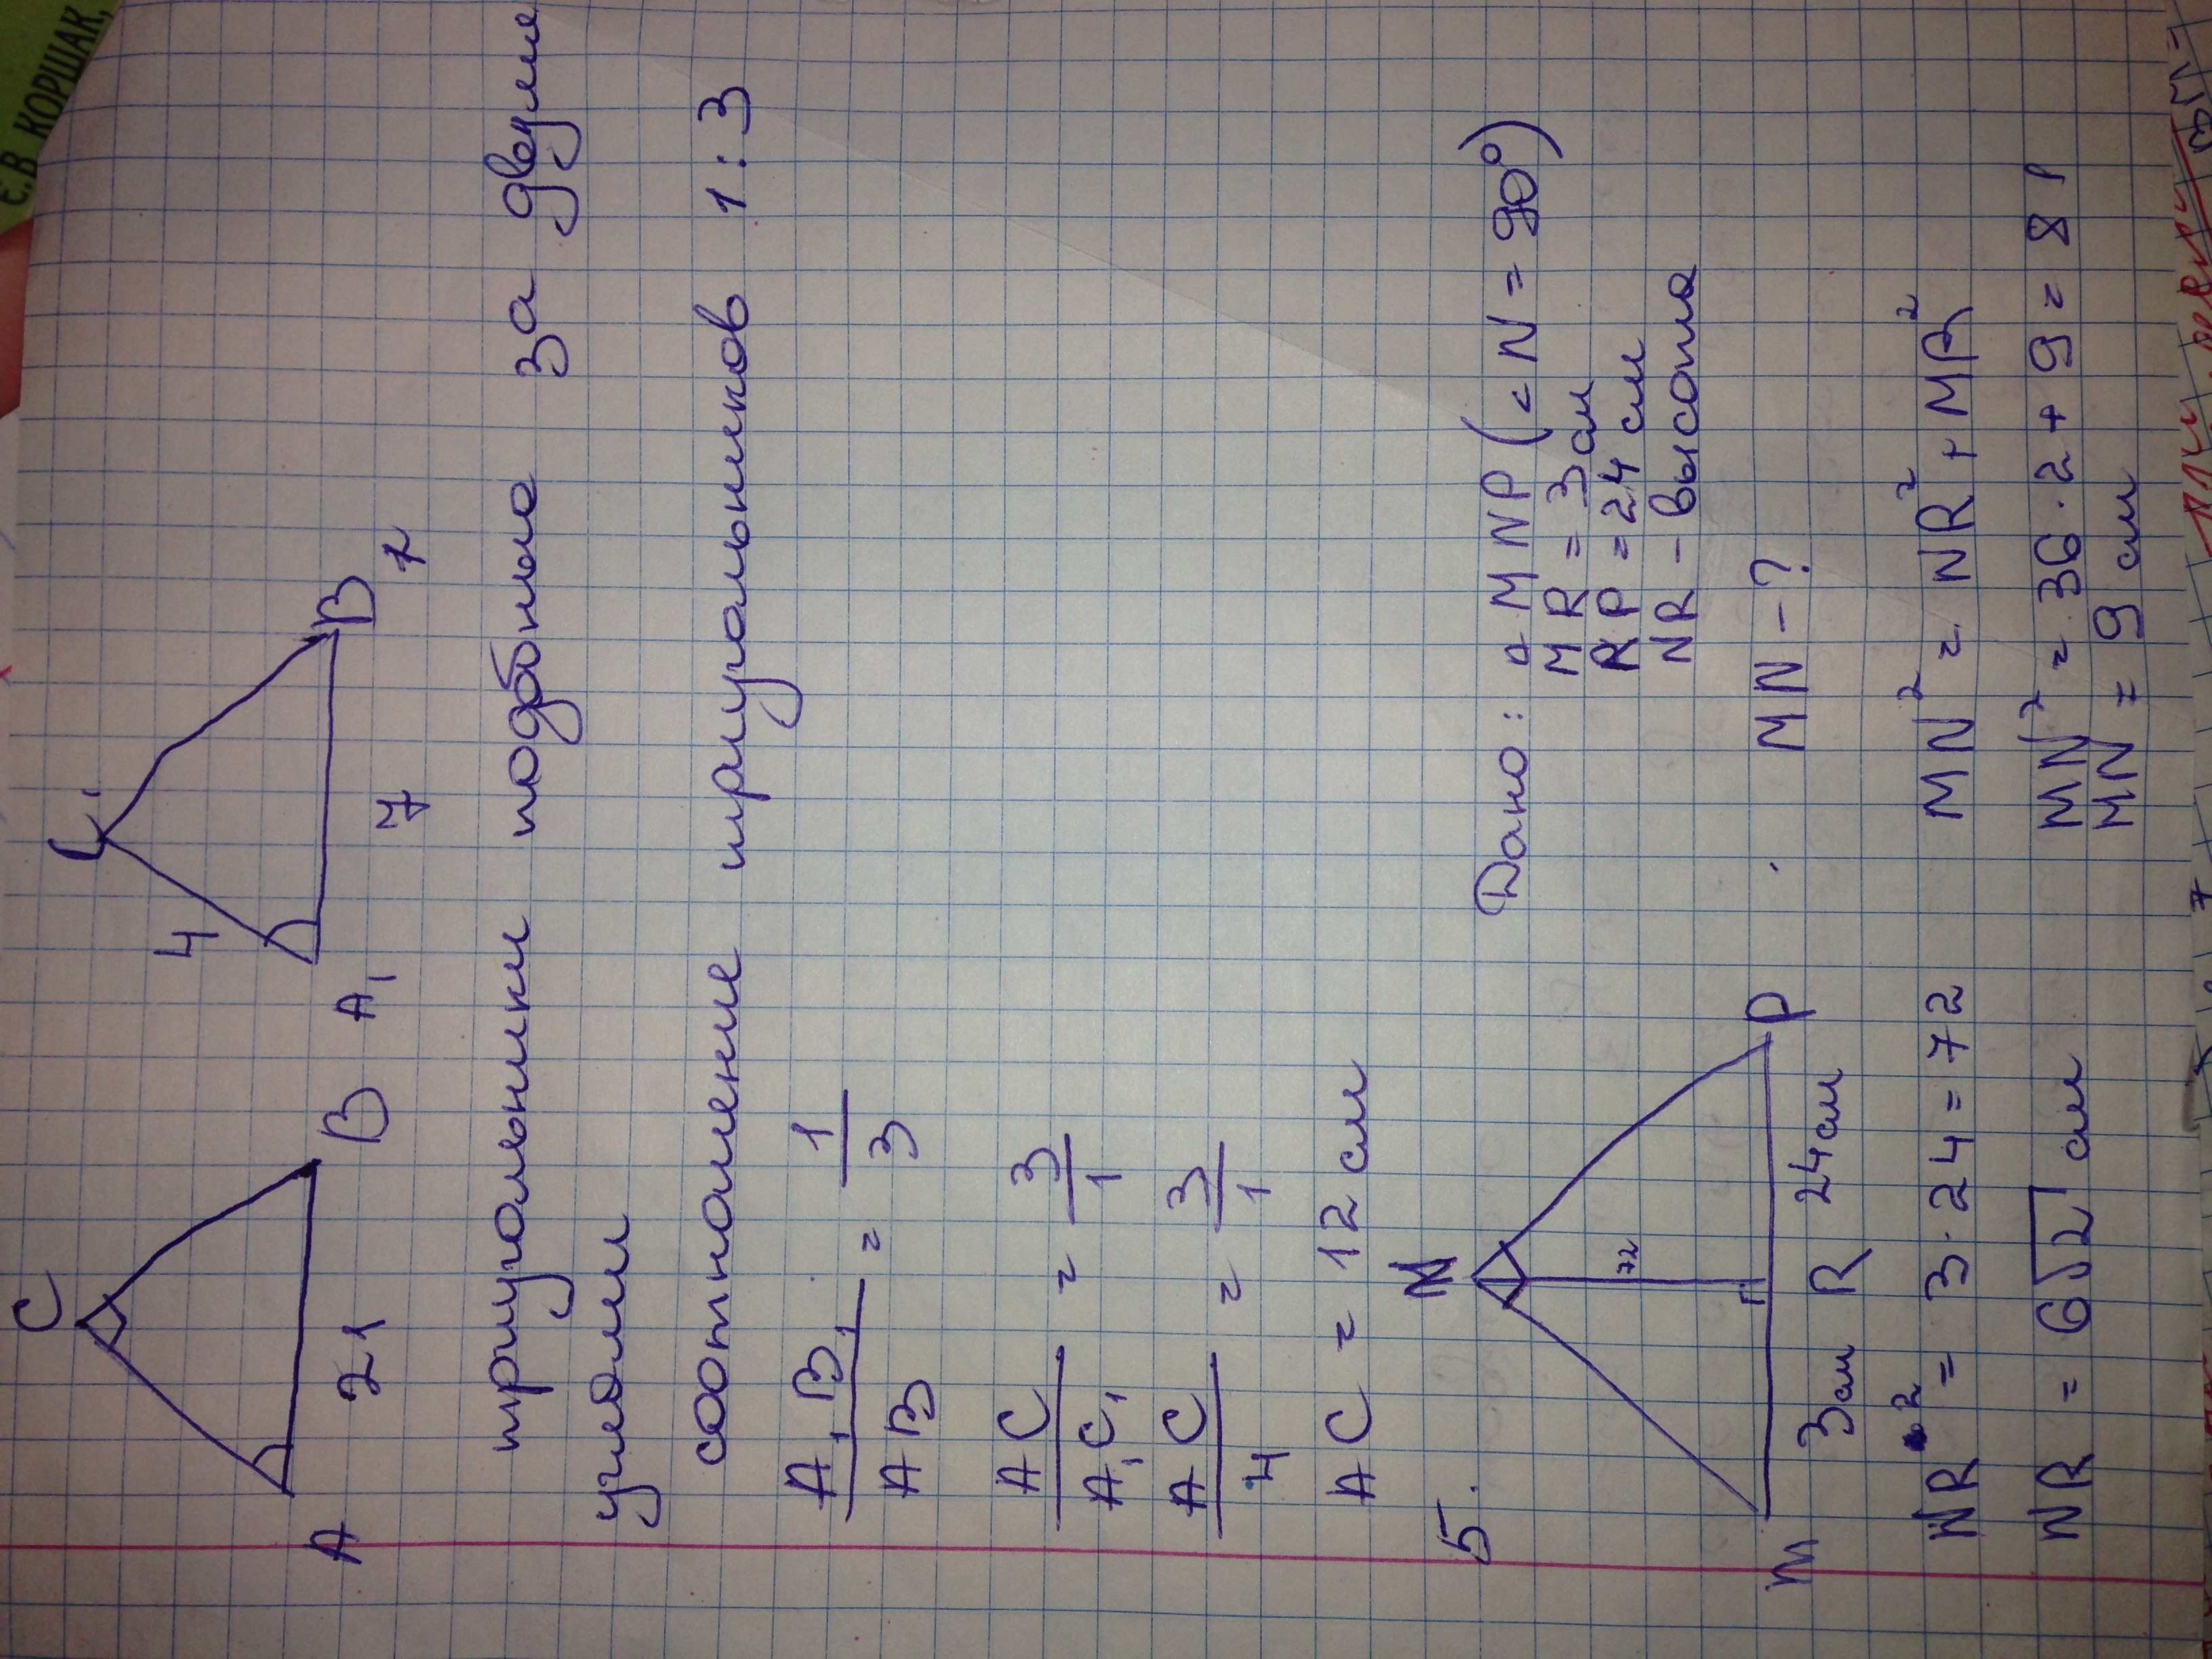 Є.В КОРШАК,
C
A 21 B
C₁
4
A₁ 7 B₁
триугольники подбоные за двумя
углами
соотношение триугольников 1:3
A₁B₁/AB = 1/3
AC/A₁C₁ = 3/1
AC/4 = 3/1
AC = 12 см
5.
N
72
M 3см R 24см P
Дано: △MNP (∠N = 90°)
MR = 3см
RP = 24 см
NR - высота
MN - ?
NR² = 3·24 = 72
NR = 6√2 см
MN² = NR² + MR²
MN² = 36·2 + 9 = 81
MN = 9 см